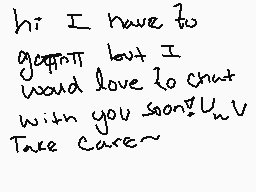 hi I have to
go but I
would love to chat
with you soon! UwU
Take care~